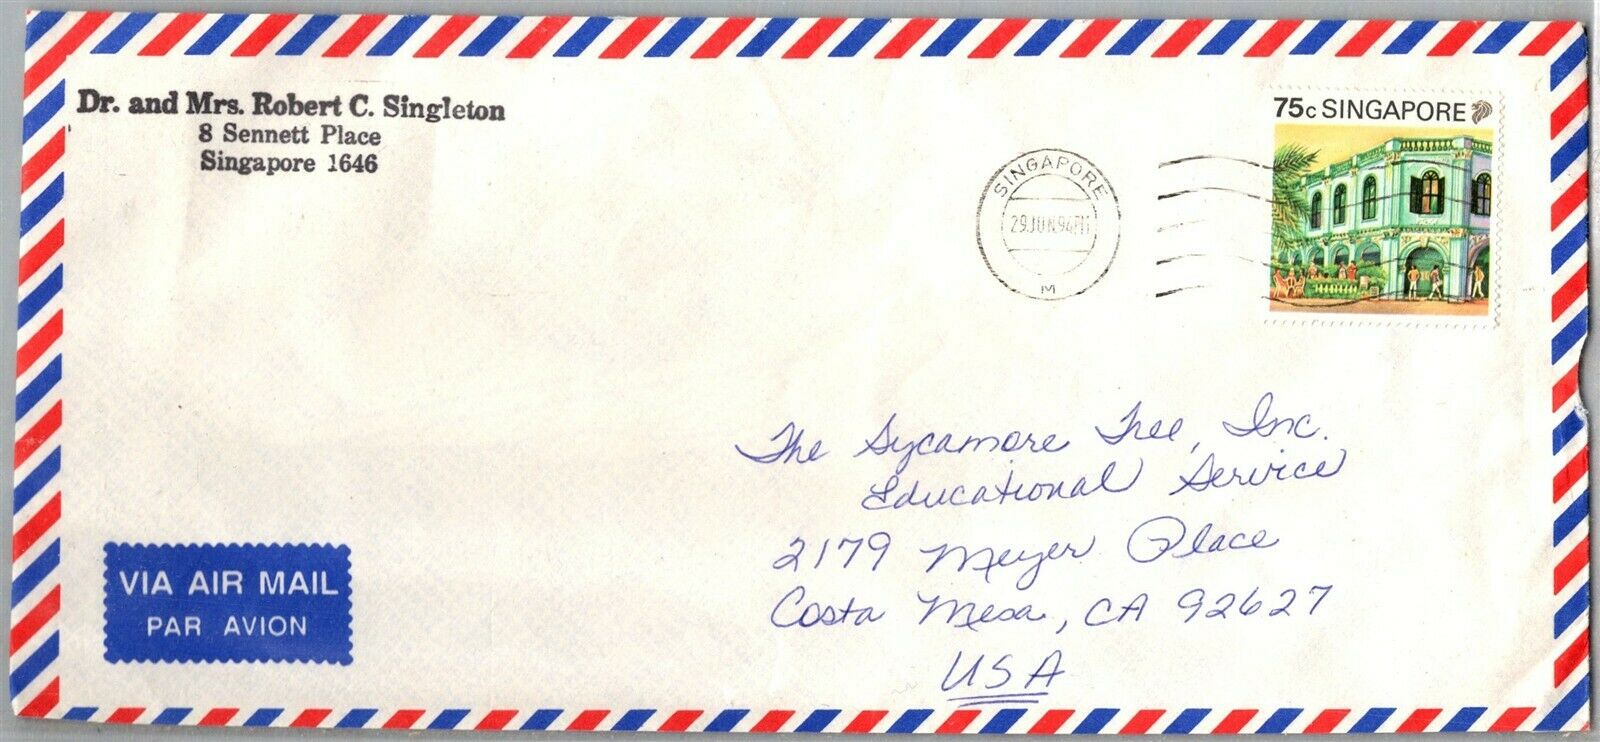 Dr. and Mrs. Robert C. Singleton
8 Sennett Place
Singapore 1646
75c SINGAPORE
SINGAPORE
29 JUN 94 PM
M
The Sycamore Tree, Inc.
Educational Service
2179 Meyer Place
Costa Mesa, CA 92627
USA
VIA AIR MAIL
PAR AVION